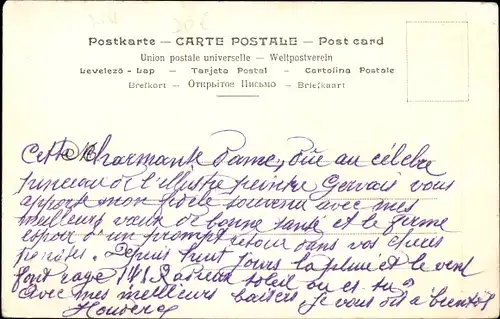 Postkarte — CARTE POSTALE — Post card
Union postale universelle — Weltpostverein
Levelező - Lap — Tarjeta Postal — Cartolina Postale
Brefkort — Открытое Письмо — Briefkaart
Cette charmante Dame, due au célèbre
pinceau de l'illustre peintre Gervais vous
apporte mon fidèle souvenir avec mes
meilleurs vœux de bonne santé et le ferme
espoir d'un prompt retour dans vos chers
Depuis huit jours la pluie et le vent
font rage soleil où es tu?
Avec mes meilleurs baisers, je vous dis à bientôt